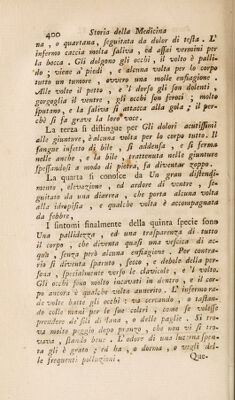 400 Storia della Medicina
na, o quartana, seguitata da dolor di testa. L'
infermo caccia molta saliva, ed assai vermini per
la bocca. Gli dolgono gli occhi, il volto è palli-
do; viene a' piedi, e alcuna volta per lo corpo
tutto un tumore, ovvero una molle enfiagione.
Alle volte il petto, e 'l dorso gli son dolenti:
gorgoglia il ventre, gli occhi son feroci; molto
sputano, e la saliva si attacca alla gola; il per-
chè si fa grave la loro voce.
La terza si distingue per Gli dolori acutissimi
alle giunture, è alcuna volta per lo corpo tutto. Il
sangue infetto di bile, si addensa, e si ferma
nelle anche, e la bile, trattenuta nelle giunture
spessandosi a modo di pietra, fa diventar zoppo.
La quarta si conosce da Un gran distendi-
mento, elevazione, ed ardore di ventre, se-
guitato da una diarrea, che porta alcuna volta
alla idropisia, e qualche volta è accompagnata
da febbre.
I sintomi finalmente della quinta specie sono
Una pallidezza, ed una trasparenza di tutto
il corpo, che diventa quasi una vescica di ac-
qua, senza però alcuna enfiagione. Per contra-
rio si diventa sparuto, secco, e debole della per-
sona, specialmente verso le clavicule, e 'l volto.
Gli occhi sono molto incavati in dentro, e il cor-
po ancora è qualche volta annerito. L' infermo ra-
de volte batte gli occhi: va cercando, o tastan-
do colle mani per le sue coltri, come se volesse
prendere de' fili di lana, o delle paglie. Si tro-
va molto peggio dopo pranzo, che non vi si tro-
vava, stando                . L'odore di una lucerna spen-
ta gli è grato; ed ha, o dorma, o vegli del-
le frequenti polluzioni.
Que-